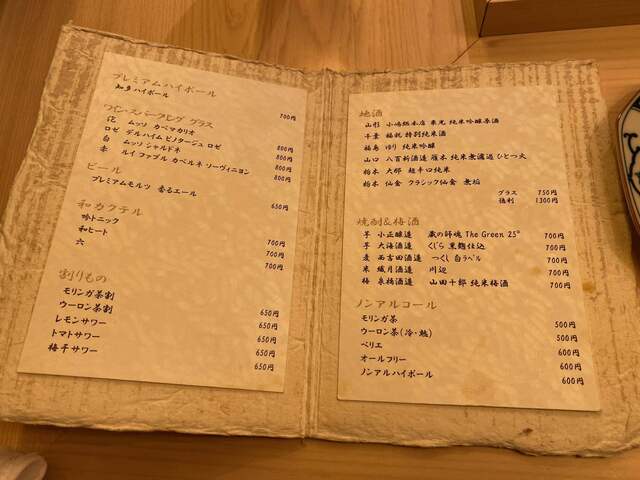 プレミアムハイボール
知多ハイボール 700円
ワイン・スパークレグ グラス
泡 ムッソ カベマカリオ 800円
ロゼ デルハイム ピノタージュ ロゼ 800円
白 ムッソ シャルドネ 800円
赤 ルイ ファブル カベルネ ソーヴィニヨン 800円
ビール
プレミアムモルツ 香るエール 650円
和カクテル
吟トニック 700円
和ヒート 700円
六 700円
割りもの
モリンガ茶割 650円
ウーロン茶割 650円
レモンサワー 650円
トマトサワー 650円
梅干サワー 650円
地酒
山形 小嶋総本店 東光 純米吟醸原酒
千葉 福祝 特別純米酒
福島 ゆり 純米吟醸
山口 八百新酒造 雁木 純米無濾過 ひとつ火
栃木 大那 超辛口純米
栃木 仙禽 クラシック仙禽 無垢
グラス 750円
徳利 1300円
焼酎&梅酒
芋 小正醸造 蔵の師魂 The Green 25° 700円
芋 大海酒造 くじら 黒麹仕込 700円
麦 西吉田酒造 つくし 白ラベル 700円
米 繊月酒造 川辺 700円
梅 泉橋酒造 山田十郎 純米梅酒 700円
ノンアルコール
モリンガ茶 500円
ウーロン茶(冷・熱) 500円
ペリエ 600円
オールフリー 600円
ノンアルハイボール 600円